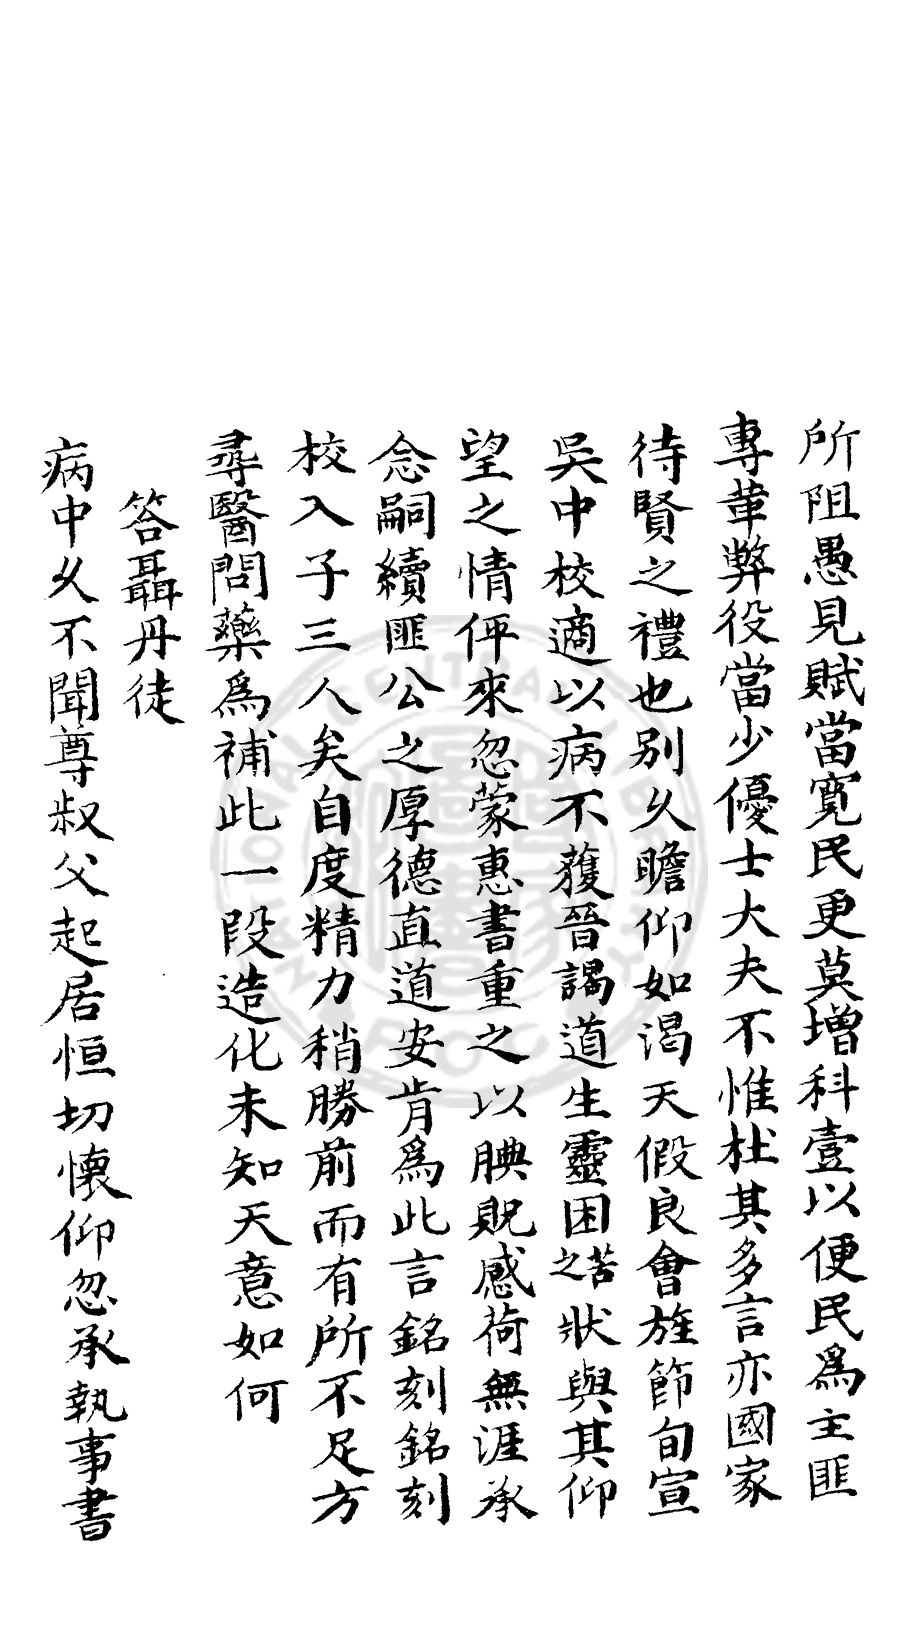 所阻愚見賦當寬民更莫增科壹以便民為主匪
專革弊役當少優士大夫不惟杜其多言亦國家
待賢之禮也別久瞻仰如渴天假良會旌節旬宣
吳中校適以病不獲晉謁道生靈困苦之狀與其仰
望之情伻來忽蒙惠書重之以腆貺感荷無涯承
念嗣續匪公之厚德直道安肯為此言銘刻銘刻
校入子三人矣自度精力稍勝前而有所不足方
尋醫問藥為補此一段造化未知天意如何
答聶丹徒
病中久不聞尊叔父起居恒切懷仰忽承執事書